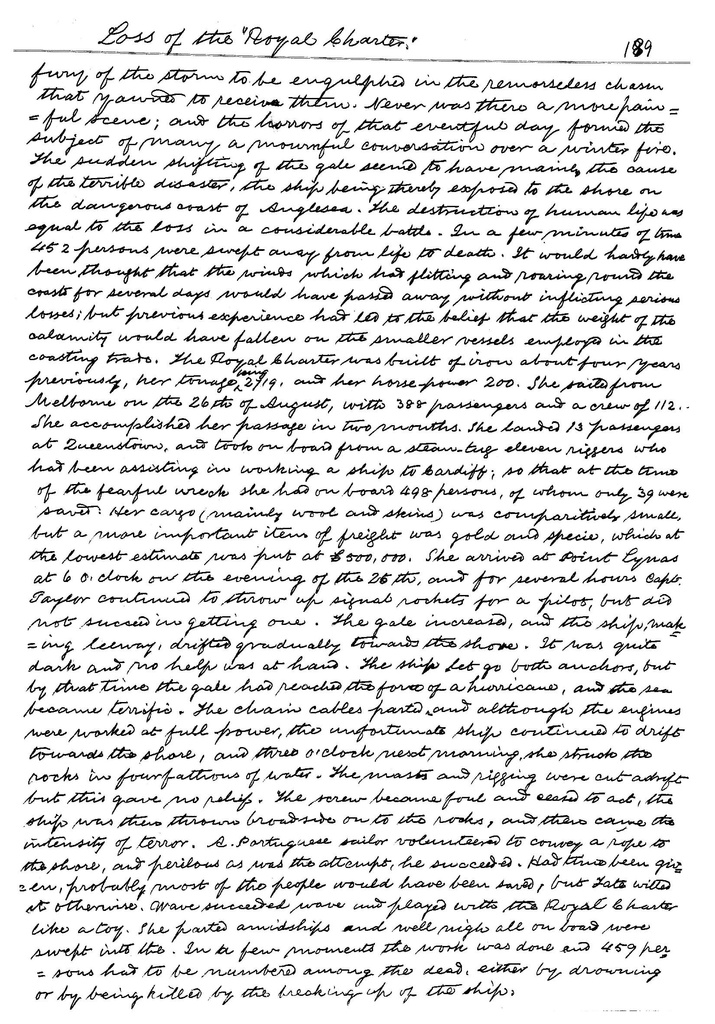 Loss of the "Royal Charter."
189
fury of the storm to be engulphed in the remorseless chasm
that yawned to receive them. Never was there a more pain=
=ful scene; and the horrors of that eventful day formed the
subject of many a mournful conversation over a winter fire.
The sudden shifting of the gale seemed to have mainly the cause
of the terrible disaster, the ship being thereby exposed to the shore on
the dangerous coast of Anglesea. The destruction of human life was
equal to the loss in a considerable battle. In a few minutes of time
452 persons were swept away from life to death. It would hardly have
been thought that the winds which had flitting and roaring round the
coasts for several days would have passed away without inflicting serious
losses; but previous experience had led to the belief that the weight of the
calamity would have fallen on the smaller vessels employed in the
coasting trade. The Royal Charter was built of iron about four years
previously, her tonage being 2719, and her horse-power 200. She sailed from
Melborne on the 26th of August, with 388 passengers and a crew of 112.
She accomplished her passage in two months. She landed 13 passengers
at Queenstown, and took on board from a steam-tug eleven riggers who
had been assisting in working a ship to Cardiff; so that at the time
of the fearful wreck she had on board 498 persons, of whom only 39 were
saved. Her cargo (mainly wool and skins) was comparitively small,
but a more important item of freight was gold and specie, which at
the lowest estimate was put at £500,000. She arrived at Point Lynas
at 6 o'clock on the evening of the 25th, and for several hours Capt.
Taylor continued to throw up signal rockets for a pilot, but did
not succeed in getting one. The gale increased, and the ship, mak=
=ing leeway, drifted gradually towards the shore. It was quite
dark and no help was at hand. The ship let go both anchors, but
by that time the gale had reached the force of a hurricane, and the sea
became terrific. The chain cables parted, and although the engines
were worked at full power, the unfortunate ship continued to drift
towards the shore, and three o'clock next morning, she struck the
rocks in four fathoms of water. The masts and rigging were cut adrift
but this gave no relief. The screw became foul and ceased to act, the
ship was then thrown broadside on to the rocks, and then came the
intensity of terror. A Portuguese sailor volunteered to convey a rope to
the shore, and perilous as was the attempt, he succeeded. Had time been giv=
=en, probably most of the people would have been saved, but Fate willed
it otherwise. Wave succeeded wave and played with the Royal Charter
like a toy. She parted amidships and well nigh all on board were
swept into the. In a few moments the work was done and 459 per
=sons had to be numbered among the dead, either by drowning
or by being killed by the breaking up of the ship.